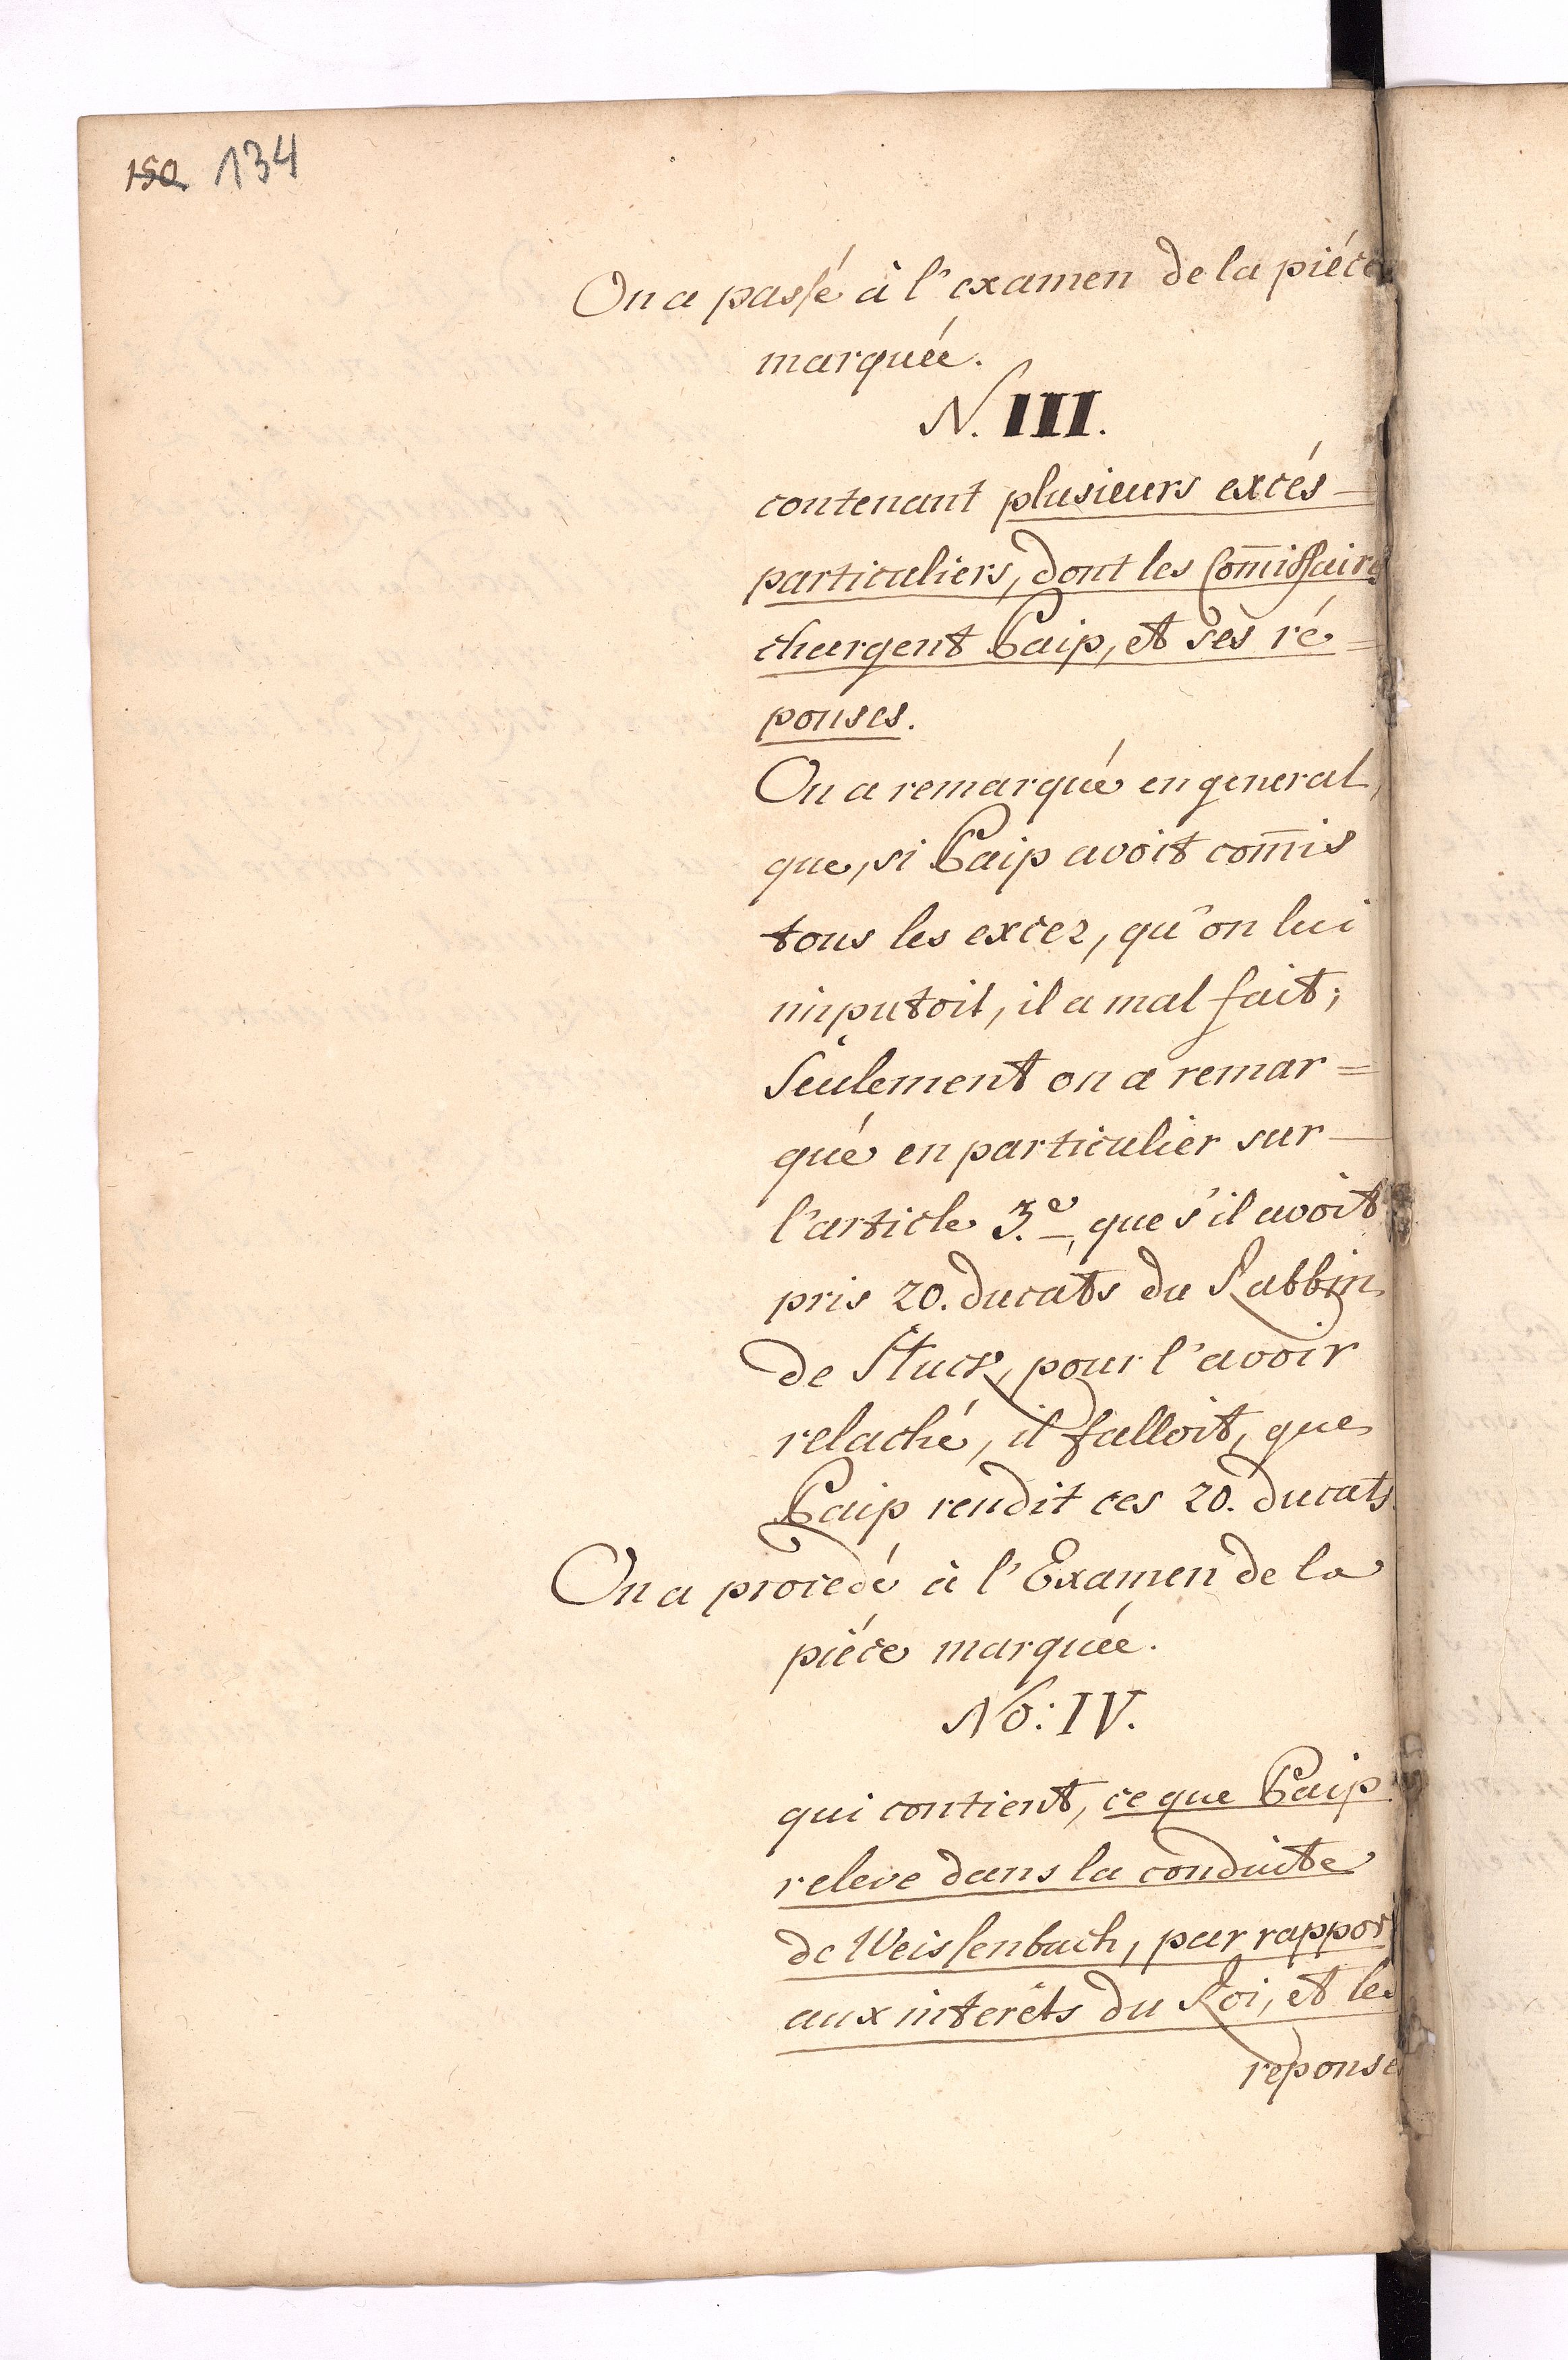 150. 134
On a passé à l'examen de la piéce
marquée.
N. III.
contenant plusieurs excés
particuliers, dont les Com̄issaires
chargent Paip, et ses ré=
ponses.
On a remarqué en general,
que, si Paip avoit com̄is
tous les excez, qu'on lui
imputoit, il a mal fait;
Seulement on a remar=
qué en particulier sur
l'article 3.e, que s'il avoit
pris 20. ducats du Rabbin
de Sluck, pour l'avoir
relaché, il falloit, que
Paip rendit ces 20. ducats.
On a procedé à l'Examen de la
piéce marquée.
No: IV.
qui contient, ce que Paip
releve dans la conduite
de Weissenbach, par rapport
aux interêts du Roi, et les
reponses